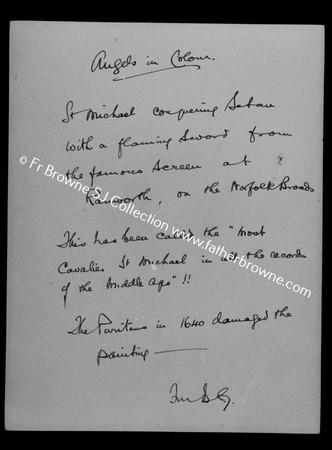 Angels in Colour.
St Michael conquering Satan
with a flaming Sword from
the famous Screen at
Ranworth, on the Norfolk Broads
This has been called the "most
Cavalier St Michael in all the records
of the Middle Ages"!!
The Puritans in 1640 damaged the
painting —
© Fr Browne S.J. Collection www.fatherbrowne.com